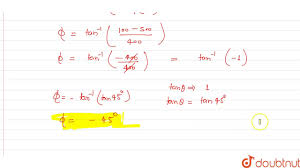 ϕ = tan⁻¹ (100 - 500 / 400)
ϕ = tan⁻¹ (-400 / 400) = tan⁻¹ (-1)
ϕ = - tan⁻¹ (tan 45°) tanθ = 1
tanθ = tan 45°
ϕ = - 45°
doubtnut